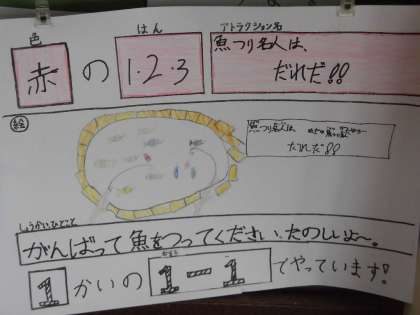 色 はん アトラクション名
赤 の 1・2・3 魚つり名人は、
だれだ!!
絵
魚つり名人は、
だれだ!!
しょうかいひとこと
がんばって魚をつってください。たのしいよ〜。
1 かいの 1－1 でやっています!